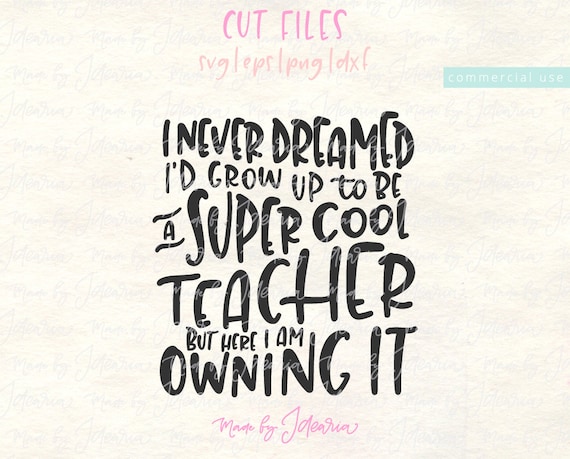 CUT FILES
svg|eps|png|dxf
commercial use
I NEVER DREAMED
I'D GROW UP to BE
A SUPER COOL
TEACHER
BUT HERE I AM
OWNING IT
Made by Jdearia